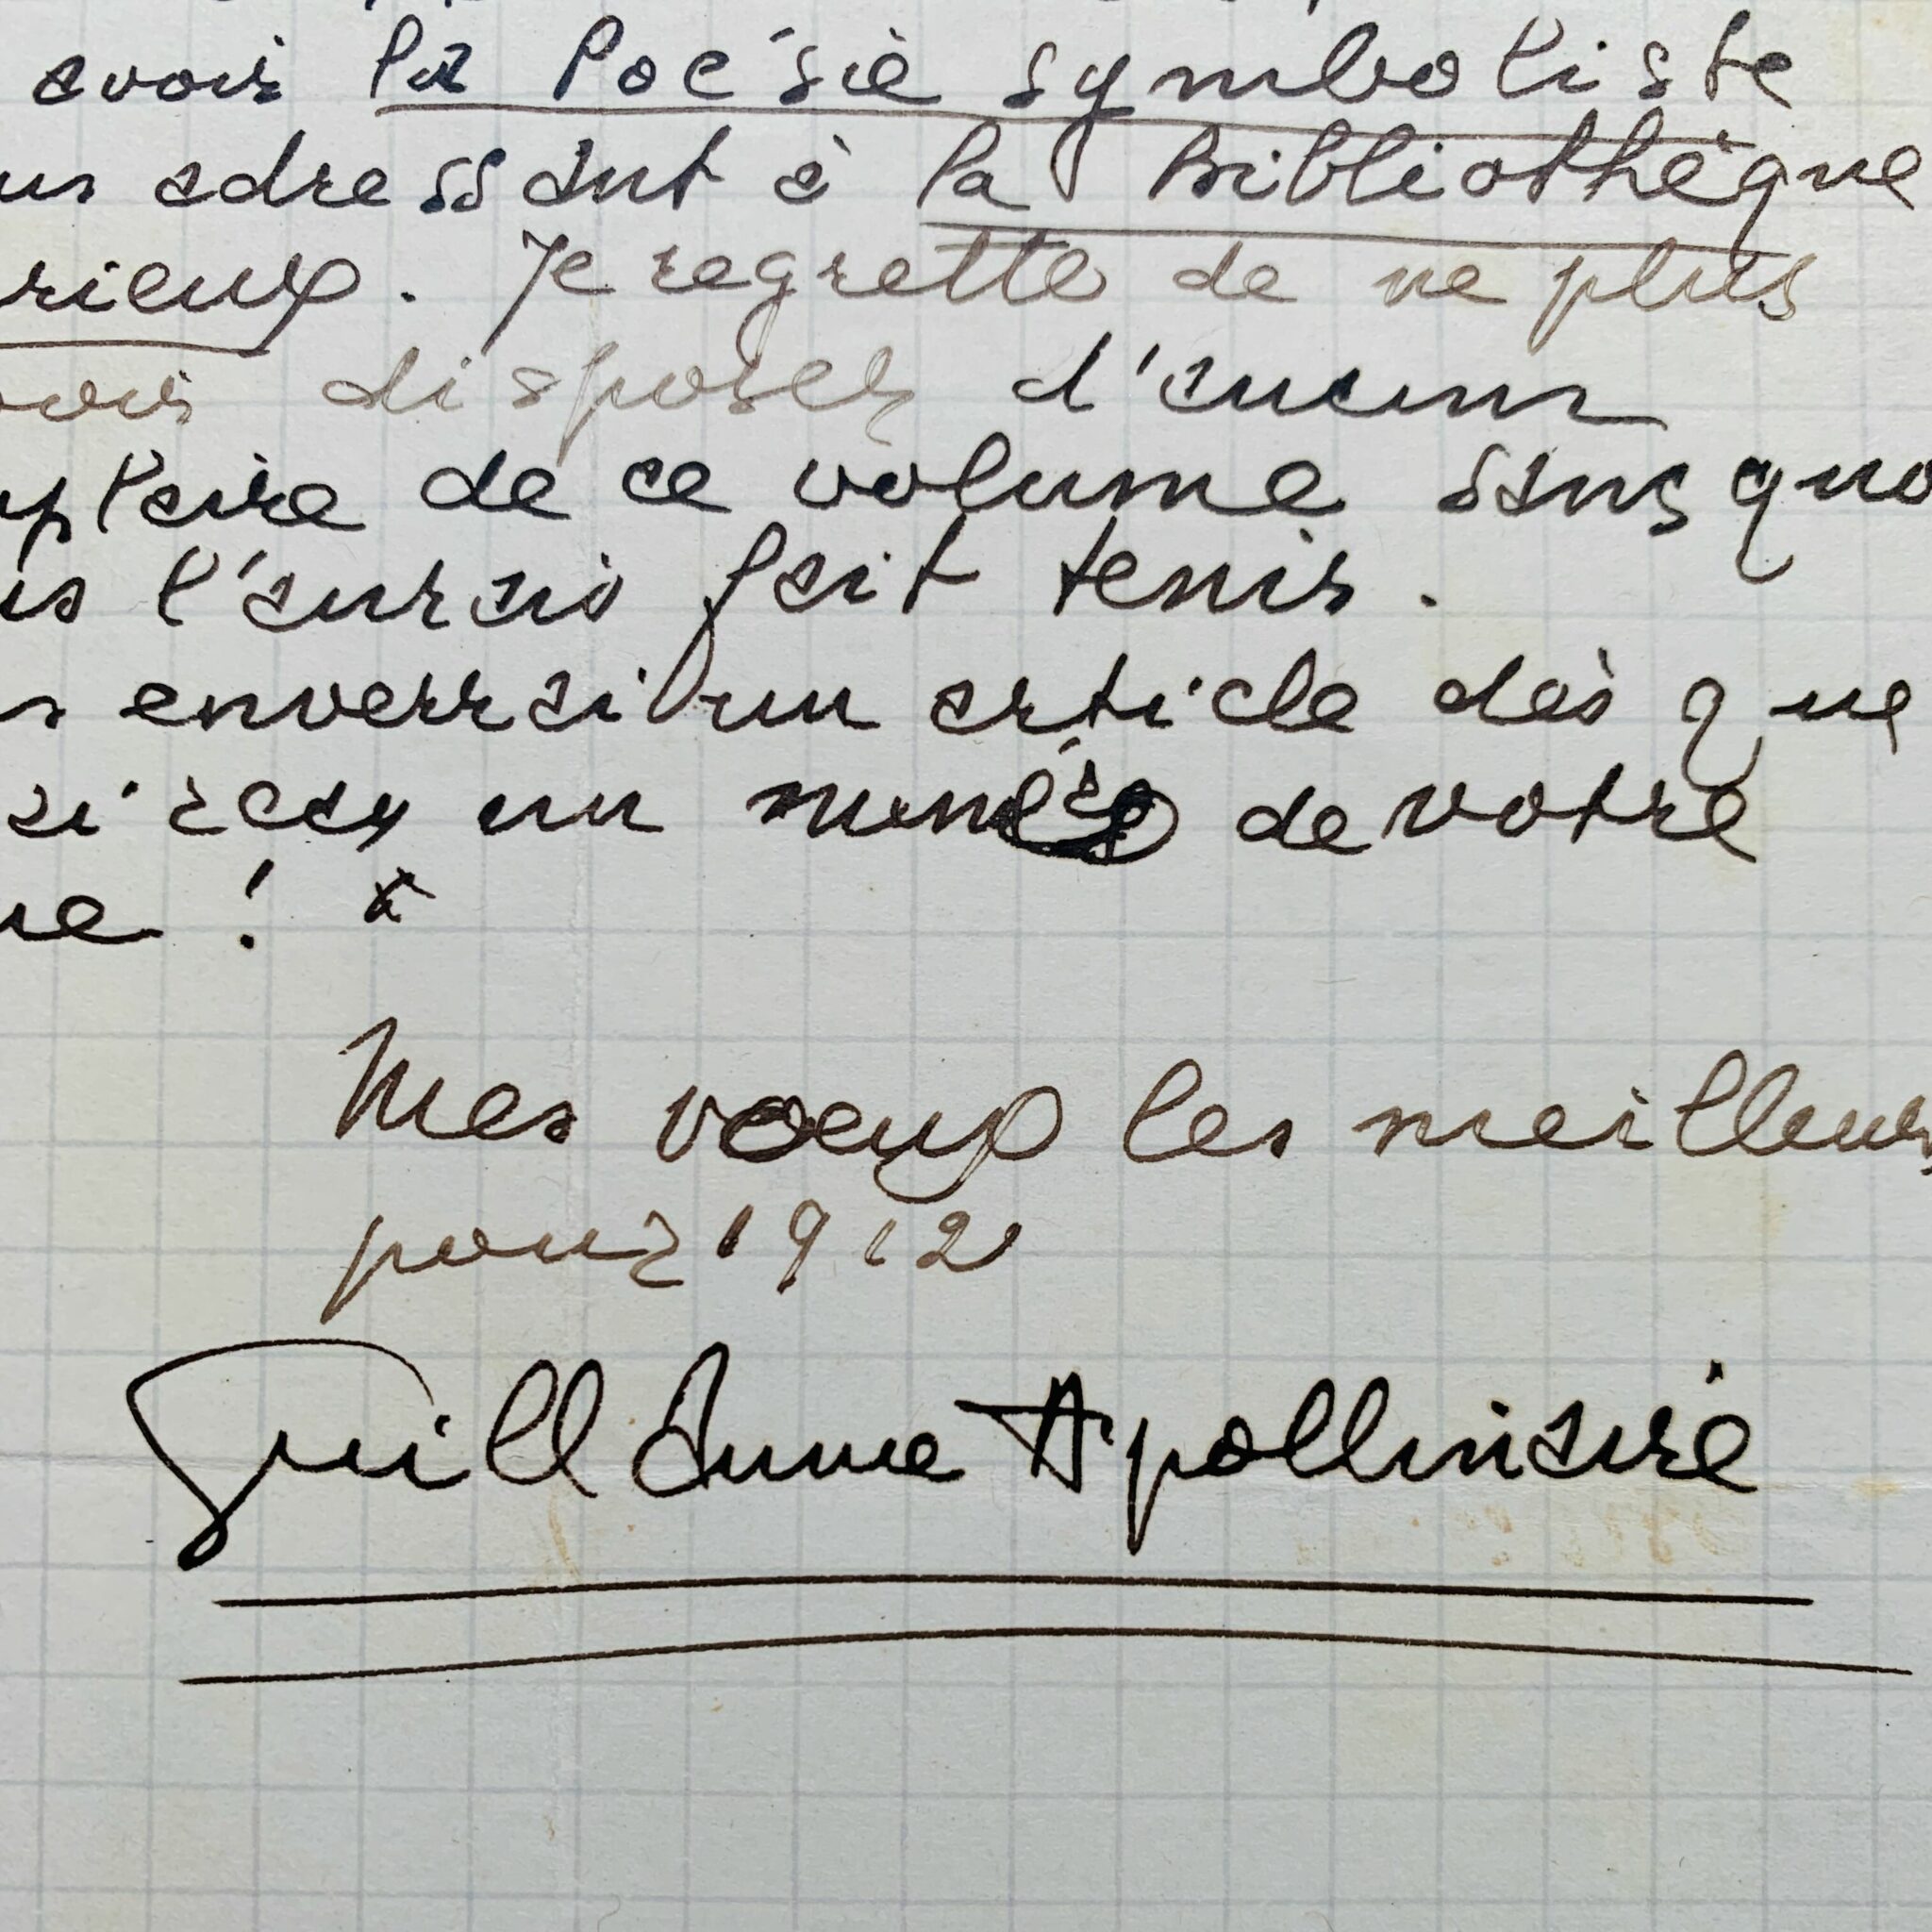 avoir la Poésie symboliste
us adressant à la Bibliothèque
rieux. Je regrette de ne plus
voir disposer d'aucun
mplaire de ce volume sans quo
us l'aurais fait tenir.
s enverrai un article dès que
ai reçu un numéro de votre
ue !
Mes voeux les meilleurs
pour 1912
Guillaume Apollinaire